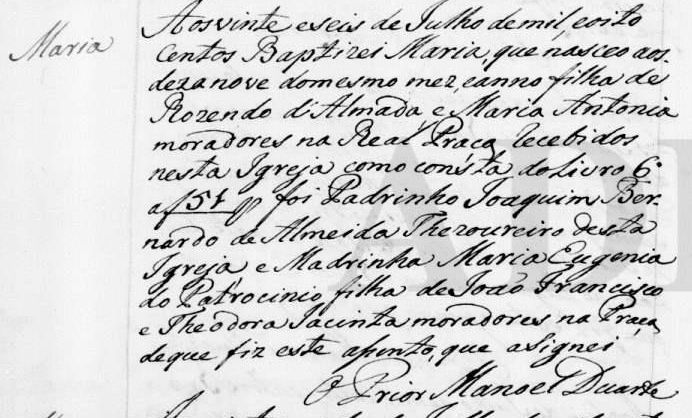 Maria
Aos vinte e seis de Julho de mil, e oito
centos Baptizei Maria, que nasceo aos
dezanove do mesmo mez, e anno filha de
Rozendo d'Almada, e Maria Antonia
moradores na Real Praça, recebidos
nesta Igreja como consta do Livro 6º
a f 51 foi Padrinho Joaquim Ber-
nardo de Almeida Thezoureiro desta
Igreja, e Madrinha Maria Eugenia
do Patrocinio filha de João Francisco
e Theodora Jacinta moradores na Praça
de que fiz este asento, que asignei
O Prior Manoel Duarte